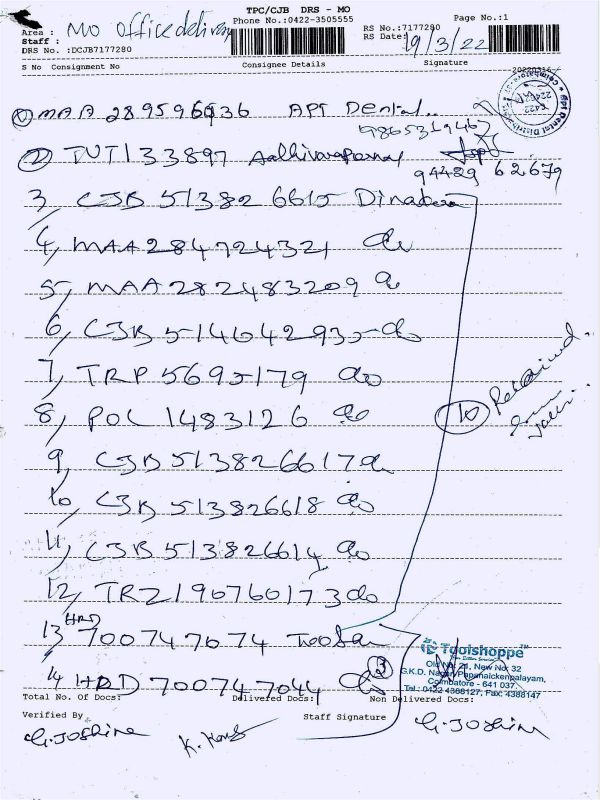 TPC/CJB DRS - MO
Area : MO office delivery
Phone No.:0422-3505555
Page No.:1
Staff :
RS No.:7177280
DRS No. :DCJB7177280
RS Date: 19/3/22
S No Consignment No Consignee Details Signature
1 MAA 289596936 APT Dental..
9865319467
2 TUT133897
94489 62679
3 CJB 513826615
4, MAA284724321 do
5, MAA 282483209 do
6, CJB 514642935 do
7, TRP 5695179 do
8, POL 1483126 do
9, CJB 513826617 do
10, CJB 513826618 do
11, CJB 513826614 do
12, TRZ190760173 do
10 Received
13 HRD 700747074
14 HRD 700747044 do
3
Toolshoppe
Old No: 21, New No: 32
G.K.D. Nagar, Papanaickenpalayam,
Coimbatore - 641 037.
Tel : 0422 4388127, Fax: 4388147
Total No. Of Docs: Delivered Docs: Non Delivered Docs:
Verified By Staff Signature
G. Joshina G. Joshina